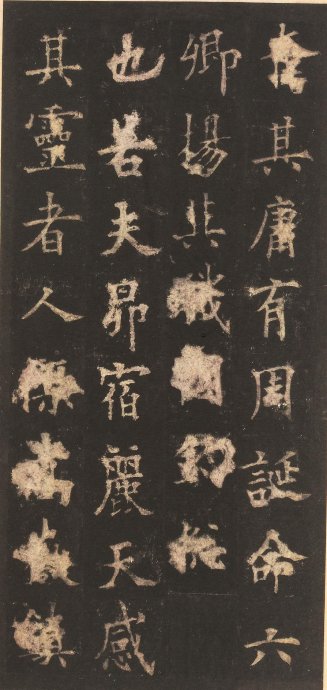 其庸有周誕命六
卿揚其職
也若夫昴宿麗天感
其靈者人傑嵩嶽鎮